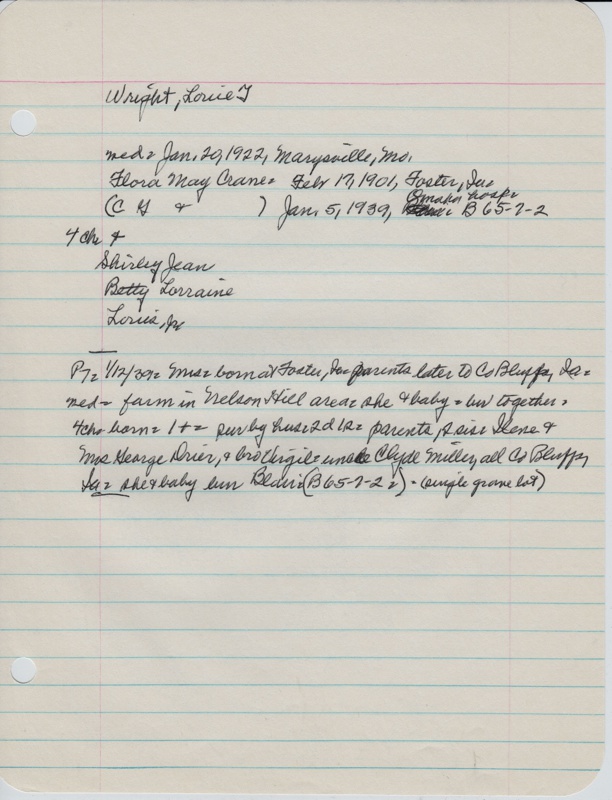 Wright, Louie J
md= Jan. 20, 1922, Marysville, Mo.
Flora May Crane= Feb 17, 1901, Foster, Ia=
Omaha hosp=
(C G & ) Jan. 5, 1939, B 65-7-2
4 ch= &
Shirley Jean
Betty Lorraine
Louis, Jr
PT= 1/12/39= Mrs= born at Foster, Ia= parents later to Co Bluffs, Ia=
md= farm in Nelson Hill area= she & baby= bur together=
4 ch= born= 1 += sur by hus= 2 d 1 s= parents, 2 sis= Ilene &
Mrs George Drier, & bro Virgil= uncle Clyde Miller, all Co Bluffs,
Ia= she & baby bur Blair= (B 65-7-2=)= (single grave lot)